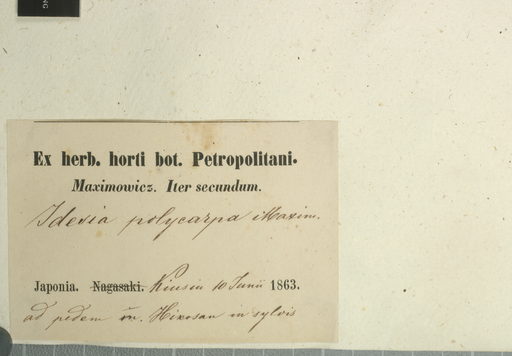 Ex herb. horti bot. Petropolitani.
Maximowicz. Iter secundum.
Idesia polycarpa Maxim.
Japonia. Nagasaki. Kiusiu 10 Junii 1863.
ad pedem m. Hikosan in sylvis